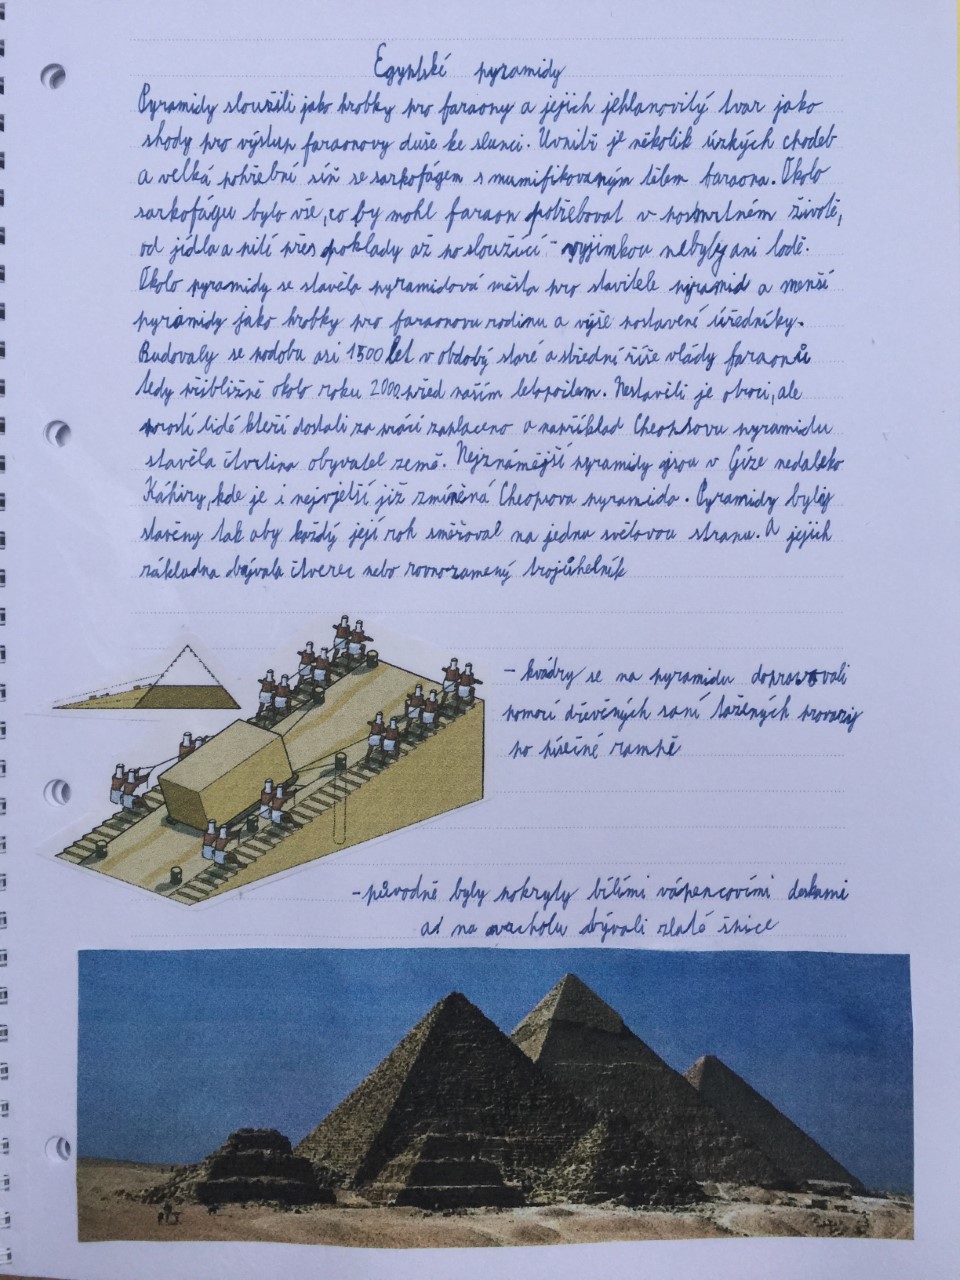 Egyptské pyramidy
Pyramidy sloužili jako hrobky pro faraony a jejich jehlanovitý tvar jako
shody pro výstup faraonovy duše ke slunci. Uvnitř je několik úzkých chodeb
a velká pohřební síň se sarkofágem s mumifikovaným tělem faraona. Okolo
sarkofágu bylo vše, co by mohl faraon potřeboval v posmrtném životě,
od jídla a pití přes poklady až po sloužící - vyjimkou nebyly ani lodě.
Okolo pyramidy se stavěla pyramidová města pro stavitele pyramid a menší
pyramidy jako hrobky pro faraonovu rodinu a výše postavení úředníky.
Budovaly se podobu asi 1500 let v obdobý staré a střední říše vlády faraonů
tedy přibližně okolo roku 2000 před naším letopočtem. Nestavěli je otroci, ale
prostí lidé kteří dostali za práci zaplaceno a například Cheopsovu pyramidu
stavěla čtvrtina obyvatel země. Nejznámější pyramidy jsou v Gíze nedaleko
Káhiry, kde je i nejvjetší již zmíněná Cheopsova pyramida. Pyramidy byly
stavěny tak aby každý její roh směřoval na jednu světovou stranu. A jejich
základna bývala čtverec nebo rovnoramený trojůhelník
- kvádry se na pyramidu dopravovali
pomocí dřevěných saní tažených provazy
po písečné rampě
- původně byly pokryty bílími vápencovími deskami
až na vrcholu bývali zlaté špice